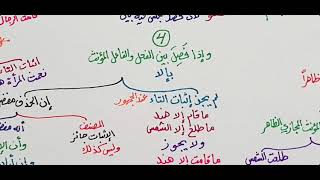 ٤
وإذا فُصِلَ بين الفعل والفاعل المؤنث
بإلا
لم يجز إثبات التاء عند الجمهور
ما قام إلا هند
ما طلع إلا الشمس
ولا يجوز
ما قامت إلا هند
المصنف
الإثبات جائز
وليس كذلك
إن الحذف
ظاهراً
المؤنث المجازي الظاهر
طلعت الشمس
إثبات التاء
نعمت المرأة